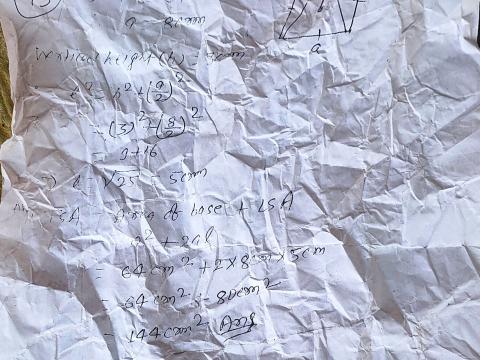 a
8cm
vertical height (h) = 3cm
l² = h² + (a/2)²
= (3)² + (8/2)²
= 9+16
l = √25 5cm
TSA = Area of base + LSA
a² + 2al
= 64cm² + 2×8cm×5cm
= 64cm² + 80cm²
= 144cm² Ans